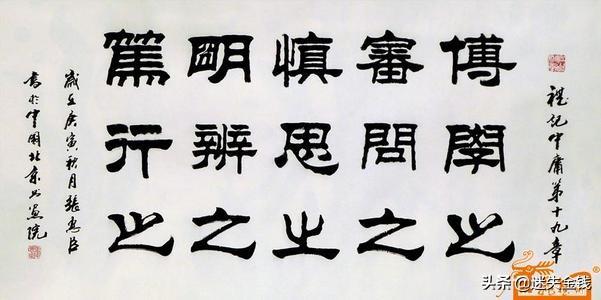 禮記中庸第十九章
博學之
審問之
慎思之
明辨之
篤行之
歲在庚寅秋月張
書於中國北京書畫院
头条 @迷失金钱